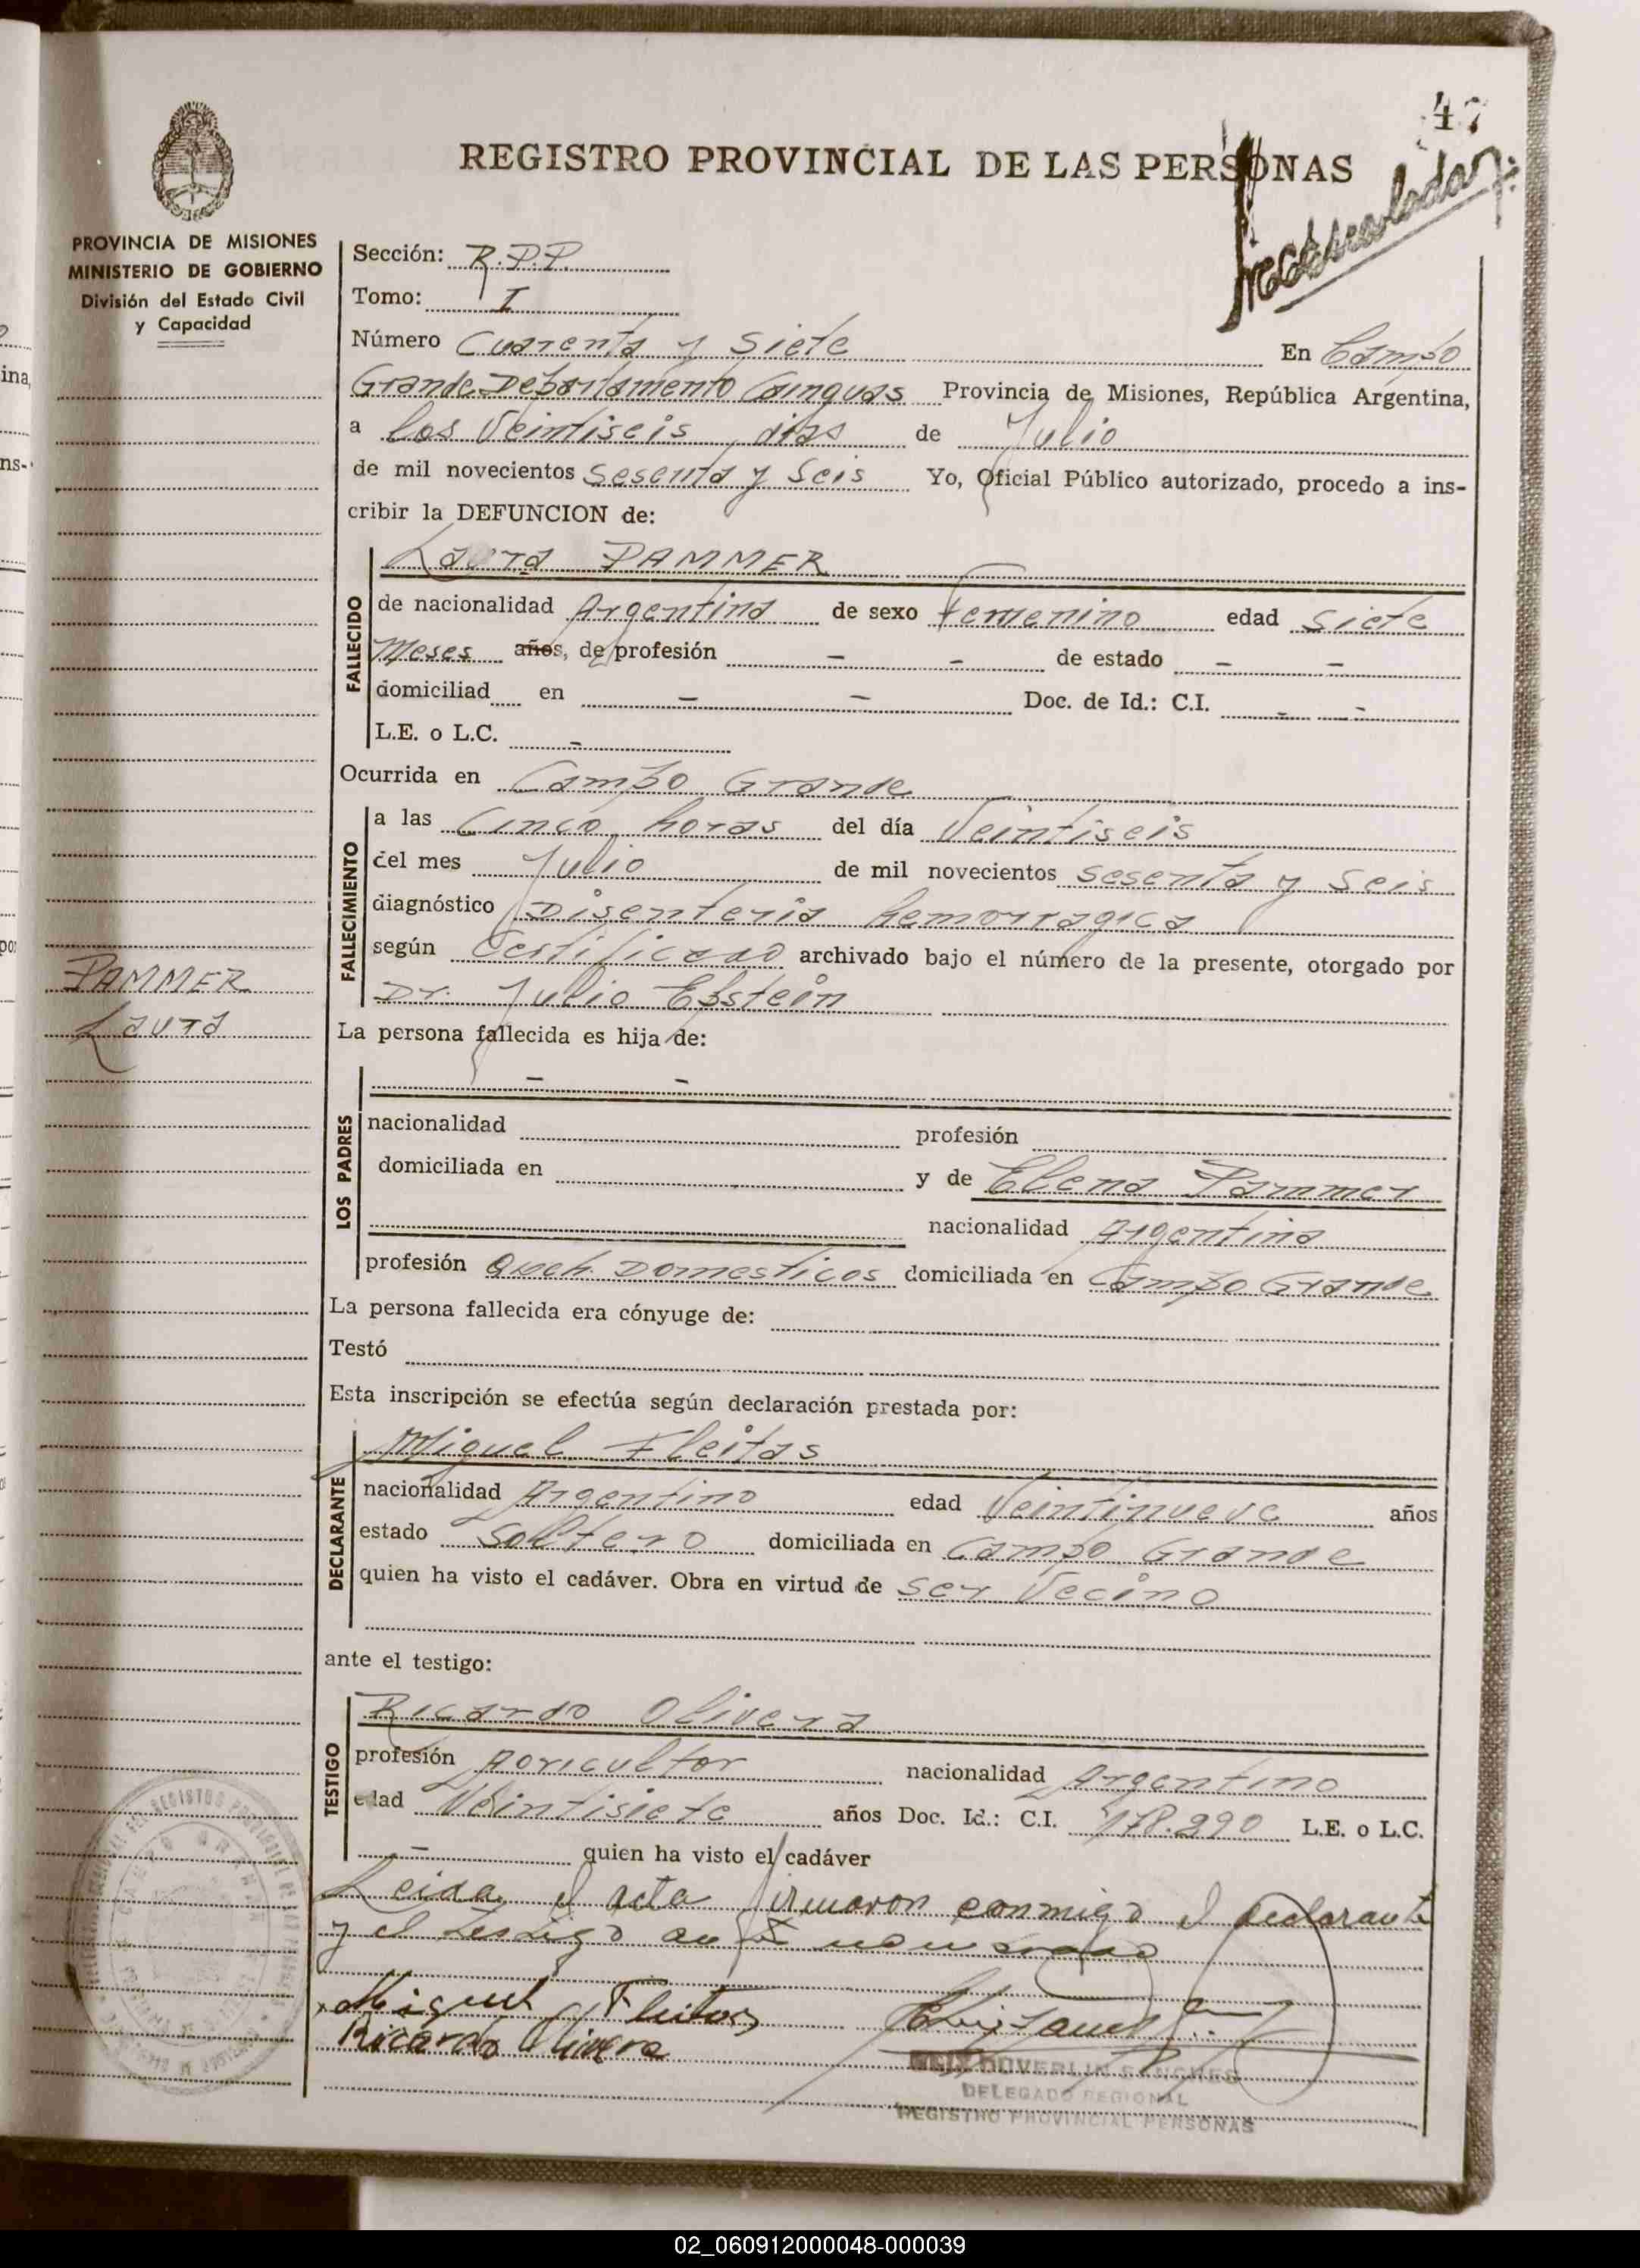 47
REGISTRO PROVINCIAL DE LAS PERSONAS
PROVINCIA DE MISIONES
MINISTERIO DE GOBIERNO
División del Estado Civil
y Capacidad
Sección: R.P.P.
Tomo: I
Número Cuarenta y Siete En Campo
Grande Departamento Cainguas Provincia de Misiones, República Argentina,
a los Veintiseis dias de Julio
de mil novecientos Sesenta y Seis Yo, Oficial Público autorizado, procedo a ins-
cribir la DEFUNCION de:
Laura PAMMER
FALLECIDO
de nacionalidad Argentina de sexo femenino edad Siete
Meses años, de profesión - - de estado - -
domiciliad en - - Doc. de Id.: C.I. - -
L.E. o L.C. -
Ocurrida en Campo Grande
FALLECIMIENTO
a las Cinco horas del día Veintiseis
del mes Julio de mil novecientos sesenta y seis
diagnóstico Disenteria hemorragica
según Certificado archivado bajo el número de la presente, otorgado por
Dr. Julio Epstein
PAMMER
Laura
La persona fallecida es hija de:
- -
LOS PADRES
nacionalidad profesión
domiciliada en y de Elena Pammer
nacionalidad Argentina
profesión Queh. Domesticos domiciliada en Campo Grande
La persona fallecida era cónyuge de:
Testó
Esta inscripción se efectúa según declaración prestada por:
Miguel Fleitas
DECLARANTE
nacionalidad Argentino edad Veintinueve años
estado Soltero domiciliada en Campo Grande
quien ha visto el cadáver. Obra en virtud de ser Vecino
ante el testigo:
Ricardo Olivera
TESTIGO
profesión Agricultor nacionalidad Argentino
edad Veintisiete años Doc. Id.: C.I. 178.290 L.E. o L.C.
- quien ha visto el cadáver
Leida el acta firmaron conmigo el declarante
y el testigo
Miguel Fleitas
Ricardo Olivera
SANCHES
DELEGADO REGIONAL
REGISTRO PROVINCIAL PERSONAS
02_060912000048-000039